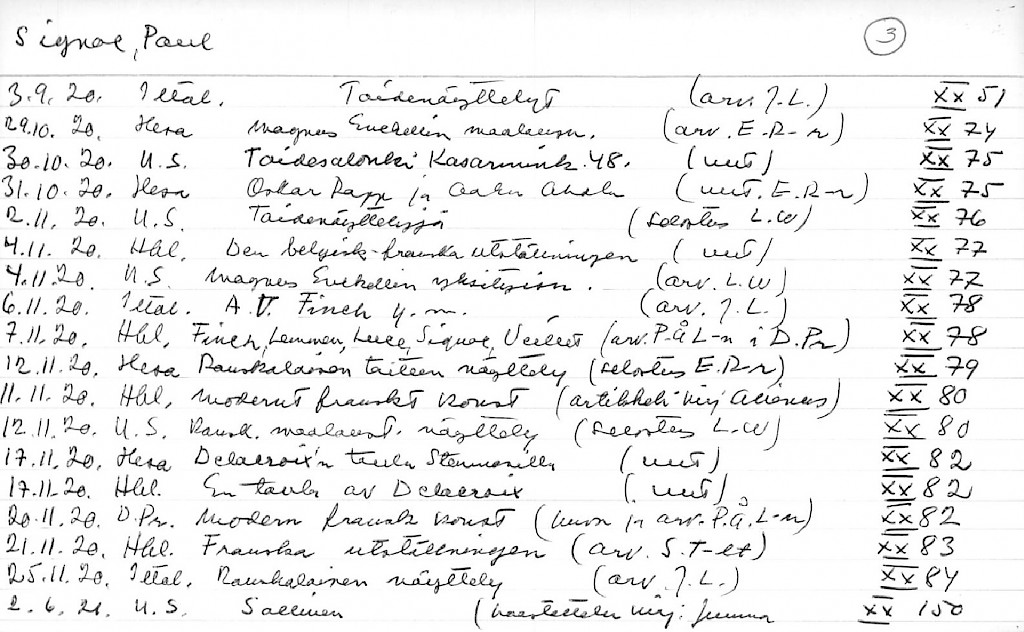 Signac, Paul 3
3.9. 20. Iltal. Taidenäyttelyt (arv. J.L.) XX 51
29.10. 20. Hesa Magnus Enckellin maalausn. (arv. E.R-r) XX 74
30.10. 20. U.S. Taidesalonki Kasarmink. 48. (uut) XX 75
31.10. 20. Hesa Oskar Papp ja (uut. E.R-r) XX 75
2.11. 20. U.S. Taidenäyttelyjä (selostus L.W) XX 76
4.11. 20. Hbl. Den belgisk-franska utställningen (uut) XX 77
4.11. 20. U.S. Magnus Enckellin yksityisn. (arv. L.W) XX 77
6.11. 20. Iltal. A.V. Finch y.m. (arv. J.L.) XX 78
7.11. 20. Hbl, Finch, Lemmen, Luce, Signac, (arv. P.Å L-n i D.Pr) XX 78
12.11. 20. Hesa Ranskalainen taiteen näyttely (selostus E.R-r) XX 79
11.11. 20. Hbl, Modernt franskt konst (artikkeli kirj ) XX 80
12.11. 20. U.S. Ransk. maalaust. näyttely (selostus L.W) XX 80
17.11. 20. Hesa Delacroix'n taulu (uut) XX 82
17.11. 20. Hbl. En tavla av Delacroix (uut) XX 82
20.11. 20. D.Pr. Modern fransk konst (kuva ja arv. P.Å. L-n) XX 82
21.11. 20. Hbl. Franska utställningen (arv. S.T-lt) XX 83
25.11. 20. Iltal. Ranskalainen näyttely (arv. J.L.) XX 84
2.6. 21. U.S. Sallinen (haastattelu kirj: XX 150